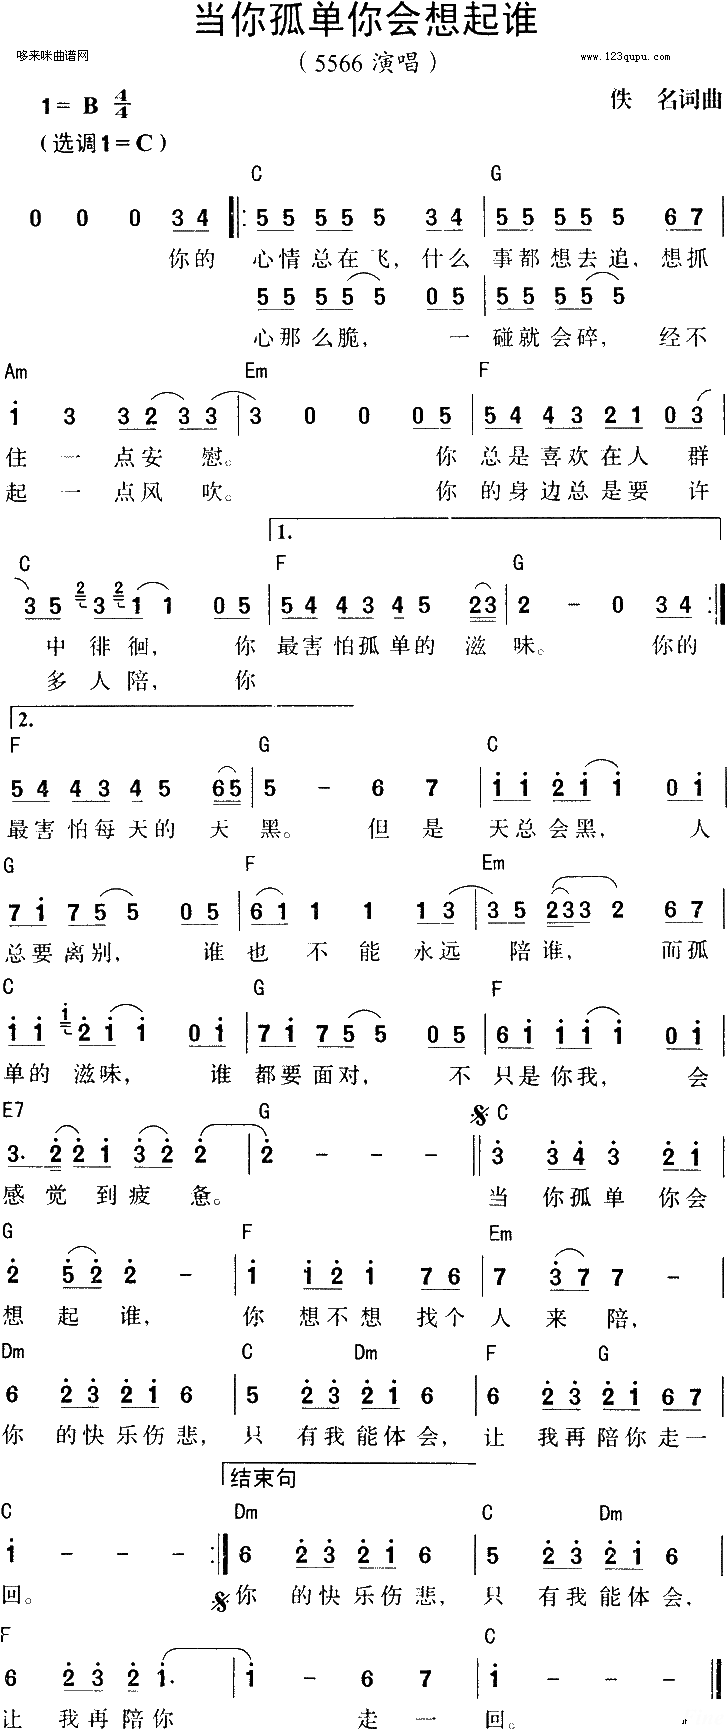 当你孤单你会想起谁
哆来咪曲谱网
（5566 演唱）
www.123qupu.com
1= B 4/4
佚 名词曲
（选调1=C）
C G
0 0 0 3 4 5 5 5 5 5 3 4 5 5 5 5 5 6 7
你的 心情总在飞，什么 事都想去追，想抓
5 5 5 5 5 0 5 5 5 5 5 5
心那么脆， 一 碰就会碎， 经不
Am Em F
1 3 3 2 3 3 3 0 0 0 5 5 4 4 3 2 1 0 3
住 一 点安 慰。 你 总是喜欢在人 群
起 一 点风 吹。 你 的身边总是要 许
1.
C F G
3 5 2 3 2 1 1 0 5 5 4 4 3 4 5 2 3 2 - 0 3 4
中 徘 徊， 你 最害怕孤单的 滋 味。 你的
多 人 陪， 你
2.
F G C
5 4 4 3 4 5 6 5 5 - 6 7 1 1 2 1 1 0 1
最害怕每天的 天 黑。 但 是 天总会黑， 人
G F Em
7 1 7 5 5 0 5 6 1 1 1 1 3 3 5 2 3 3 2 6 7
总要离别， 谁 也 不 能 永远 陪谁， 而孤
C G F
1 1 1 2 1 1 0 1 7 1 7 5 5 0 5 6 1 1 1 1 0 1
单的 滋味， 谁 都要面对， 不 只是你我， 会
E7 G C
3. 2 2 1 3 2 2 2 - - - 3 3 4 3 2 1
感 觉 到疲 惫。 当 你孤单 你会
G F Em
2 5 2 2 - 1 1 2 1 7 6 7 3 7 7 -
想 起 谁， 你 想不想 找个 人 来 陪，
Dm C Dm F G
6 2 3 2 1 6 5 2 3 2 1 6 6 2 3 2 1 6 7
你 的快乐伤悲，只 有我能体会，让 我再陪你走一
结束句
C Dm C Dm
1 - - - 6 2 3 2 1 6 5 2 3 2 1 6
回。 你 的快乐伤悲，只 有我能体会，
F C
6 2 3 2 1. 1 - 6 7 1 - -
让 我再陪你 走 一 回。